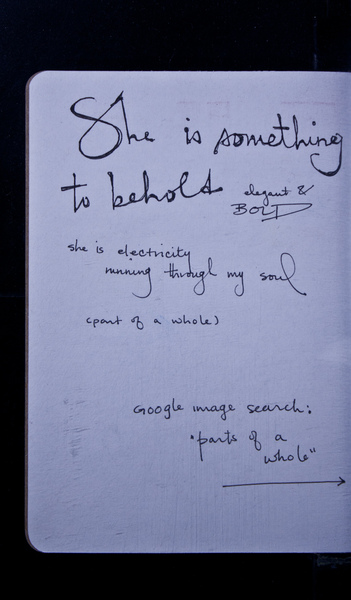 She is something
to behold elegant &
BOLD
she is electricity
running through my soul
(part of a whole)
Google image search:
"parts of a
whole"